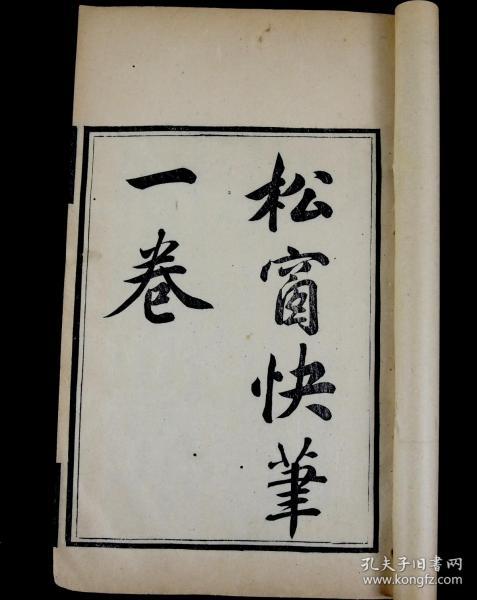 松窗快筆
一卷
孔夫子旧书网
www.kongfz.com